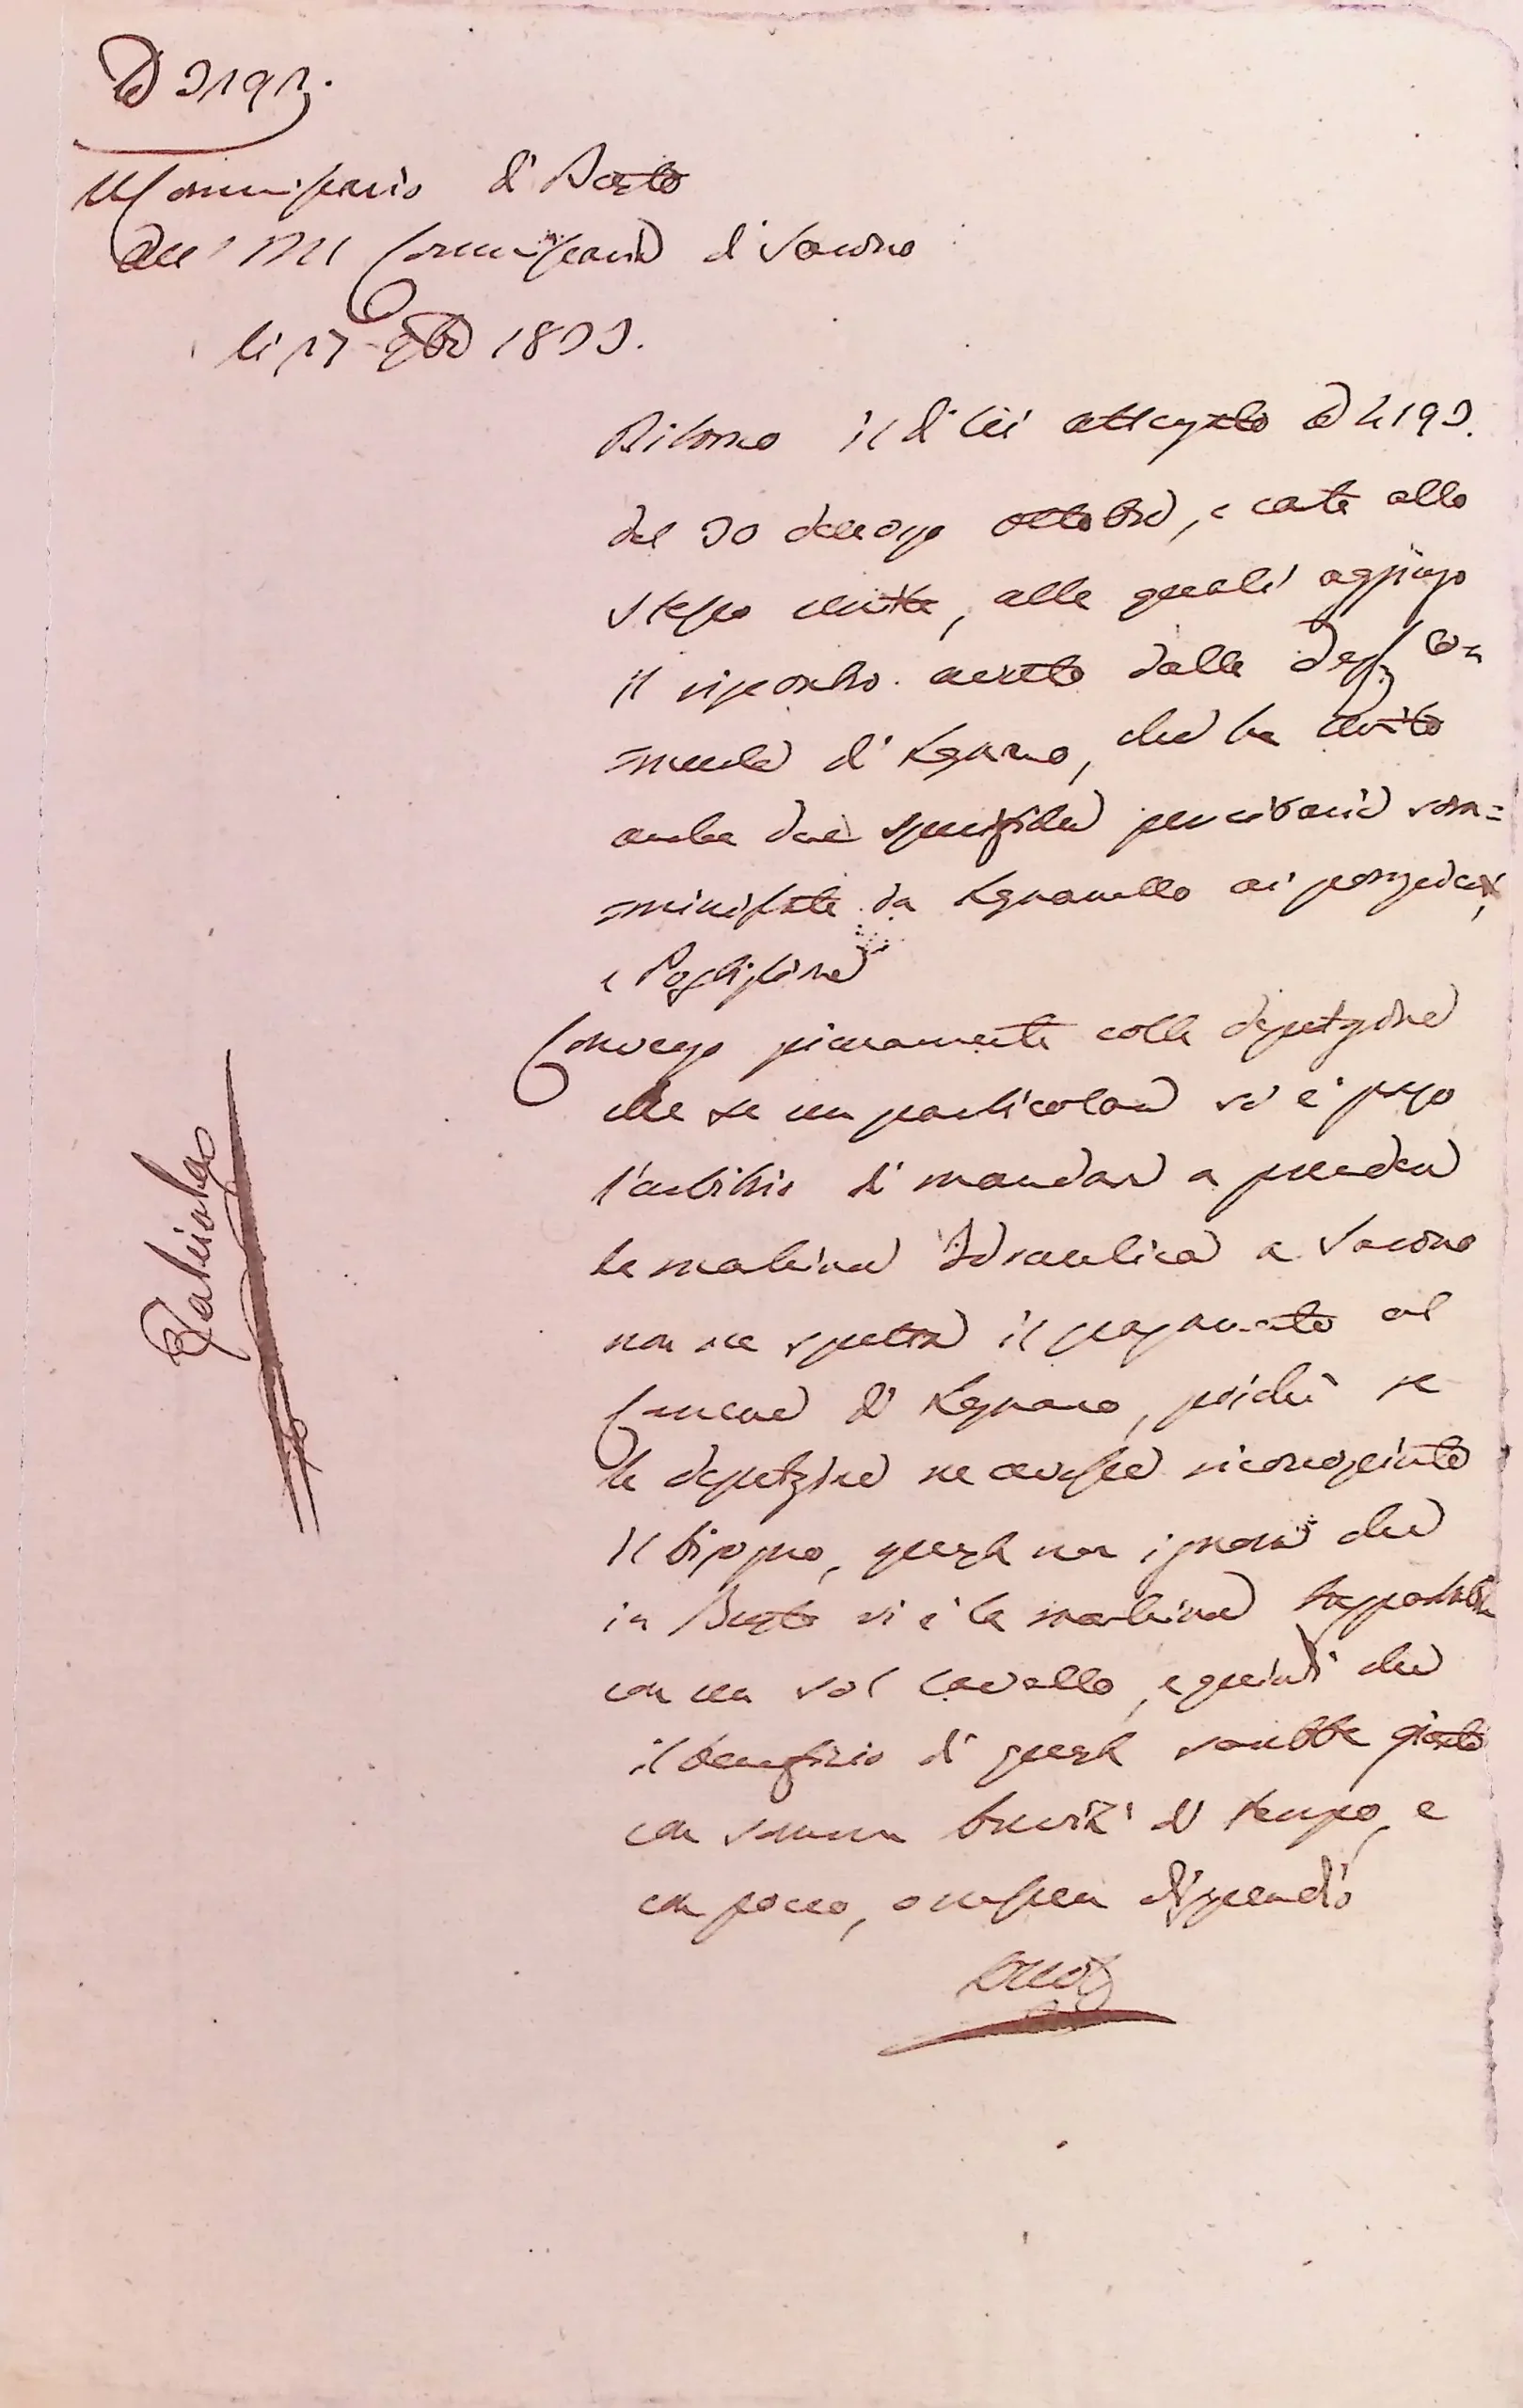 N 3191.
Al Commissario di Busto
All' I R Commissario di Sarono
li 17 9bre 1833.
Ritorno il di lei attergato N 4193.
del 30 decorso ottobre, e carte allo
stesso unite, alle quali aggiungo
il riscontro avuto dalla Dep. Co
munale di Legnano, che ha unito
anche due specifiche cibarie som=
ministrate da Legnanello ai
e Postiglione
Convengo pienamente colla deputazione
che se un particolare si è preso
l'arbitrio di mandare a prendere
la machina Idraulica a Sarono
non ne spetta il pagamento al
Comune di Legnano, poichè se
la deputazione ne avesse riconosciuto
il bisogno, questa non ignora che
in Busto vi è la machina trasportabile
con un sol cavallo, e quindi che
il beneficio di questa sarebbe giunto
con somma brevità di tempo, e
con poco, o nessun dispendio